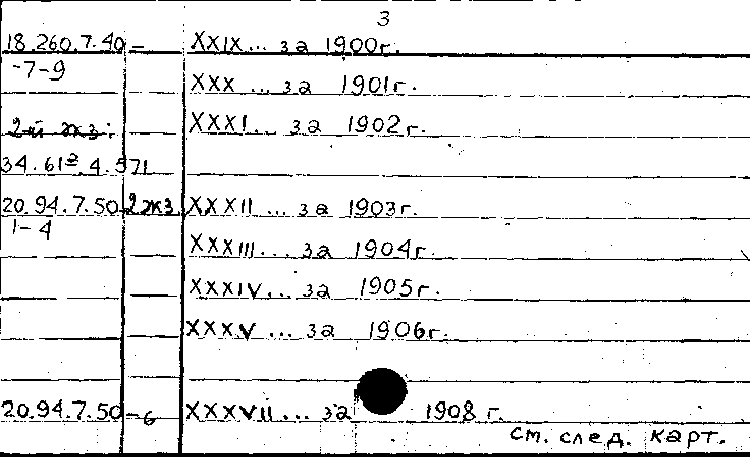 3
18.260.7.40 - XXIX... за 1900г.
-7-9
XXX ... за 1901г.
2-й экз. XXXI... за 1902г.
34.61².4.571
20.94.7.50 2 экз. XXXII ... за 1903г.
1-4
XXXIII... за 1904г.
XXXIV... за 1905г.
XXXV ... за 1906г.
20.94.7.50 -6 XXXVII... за 1908 г.
см. след. карт.